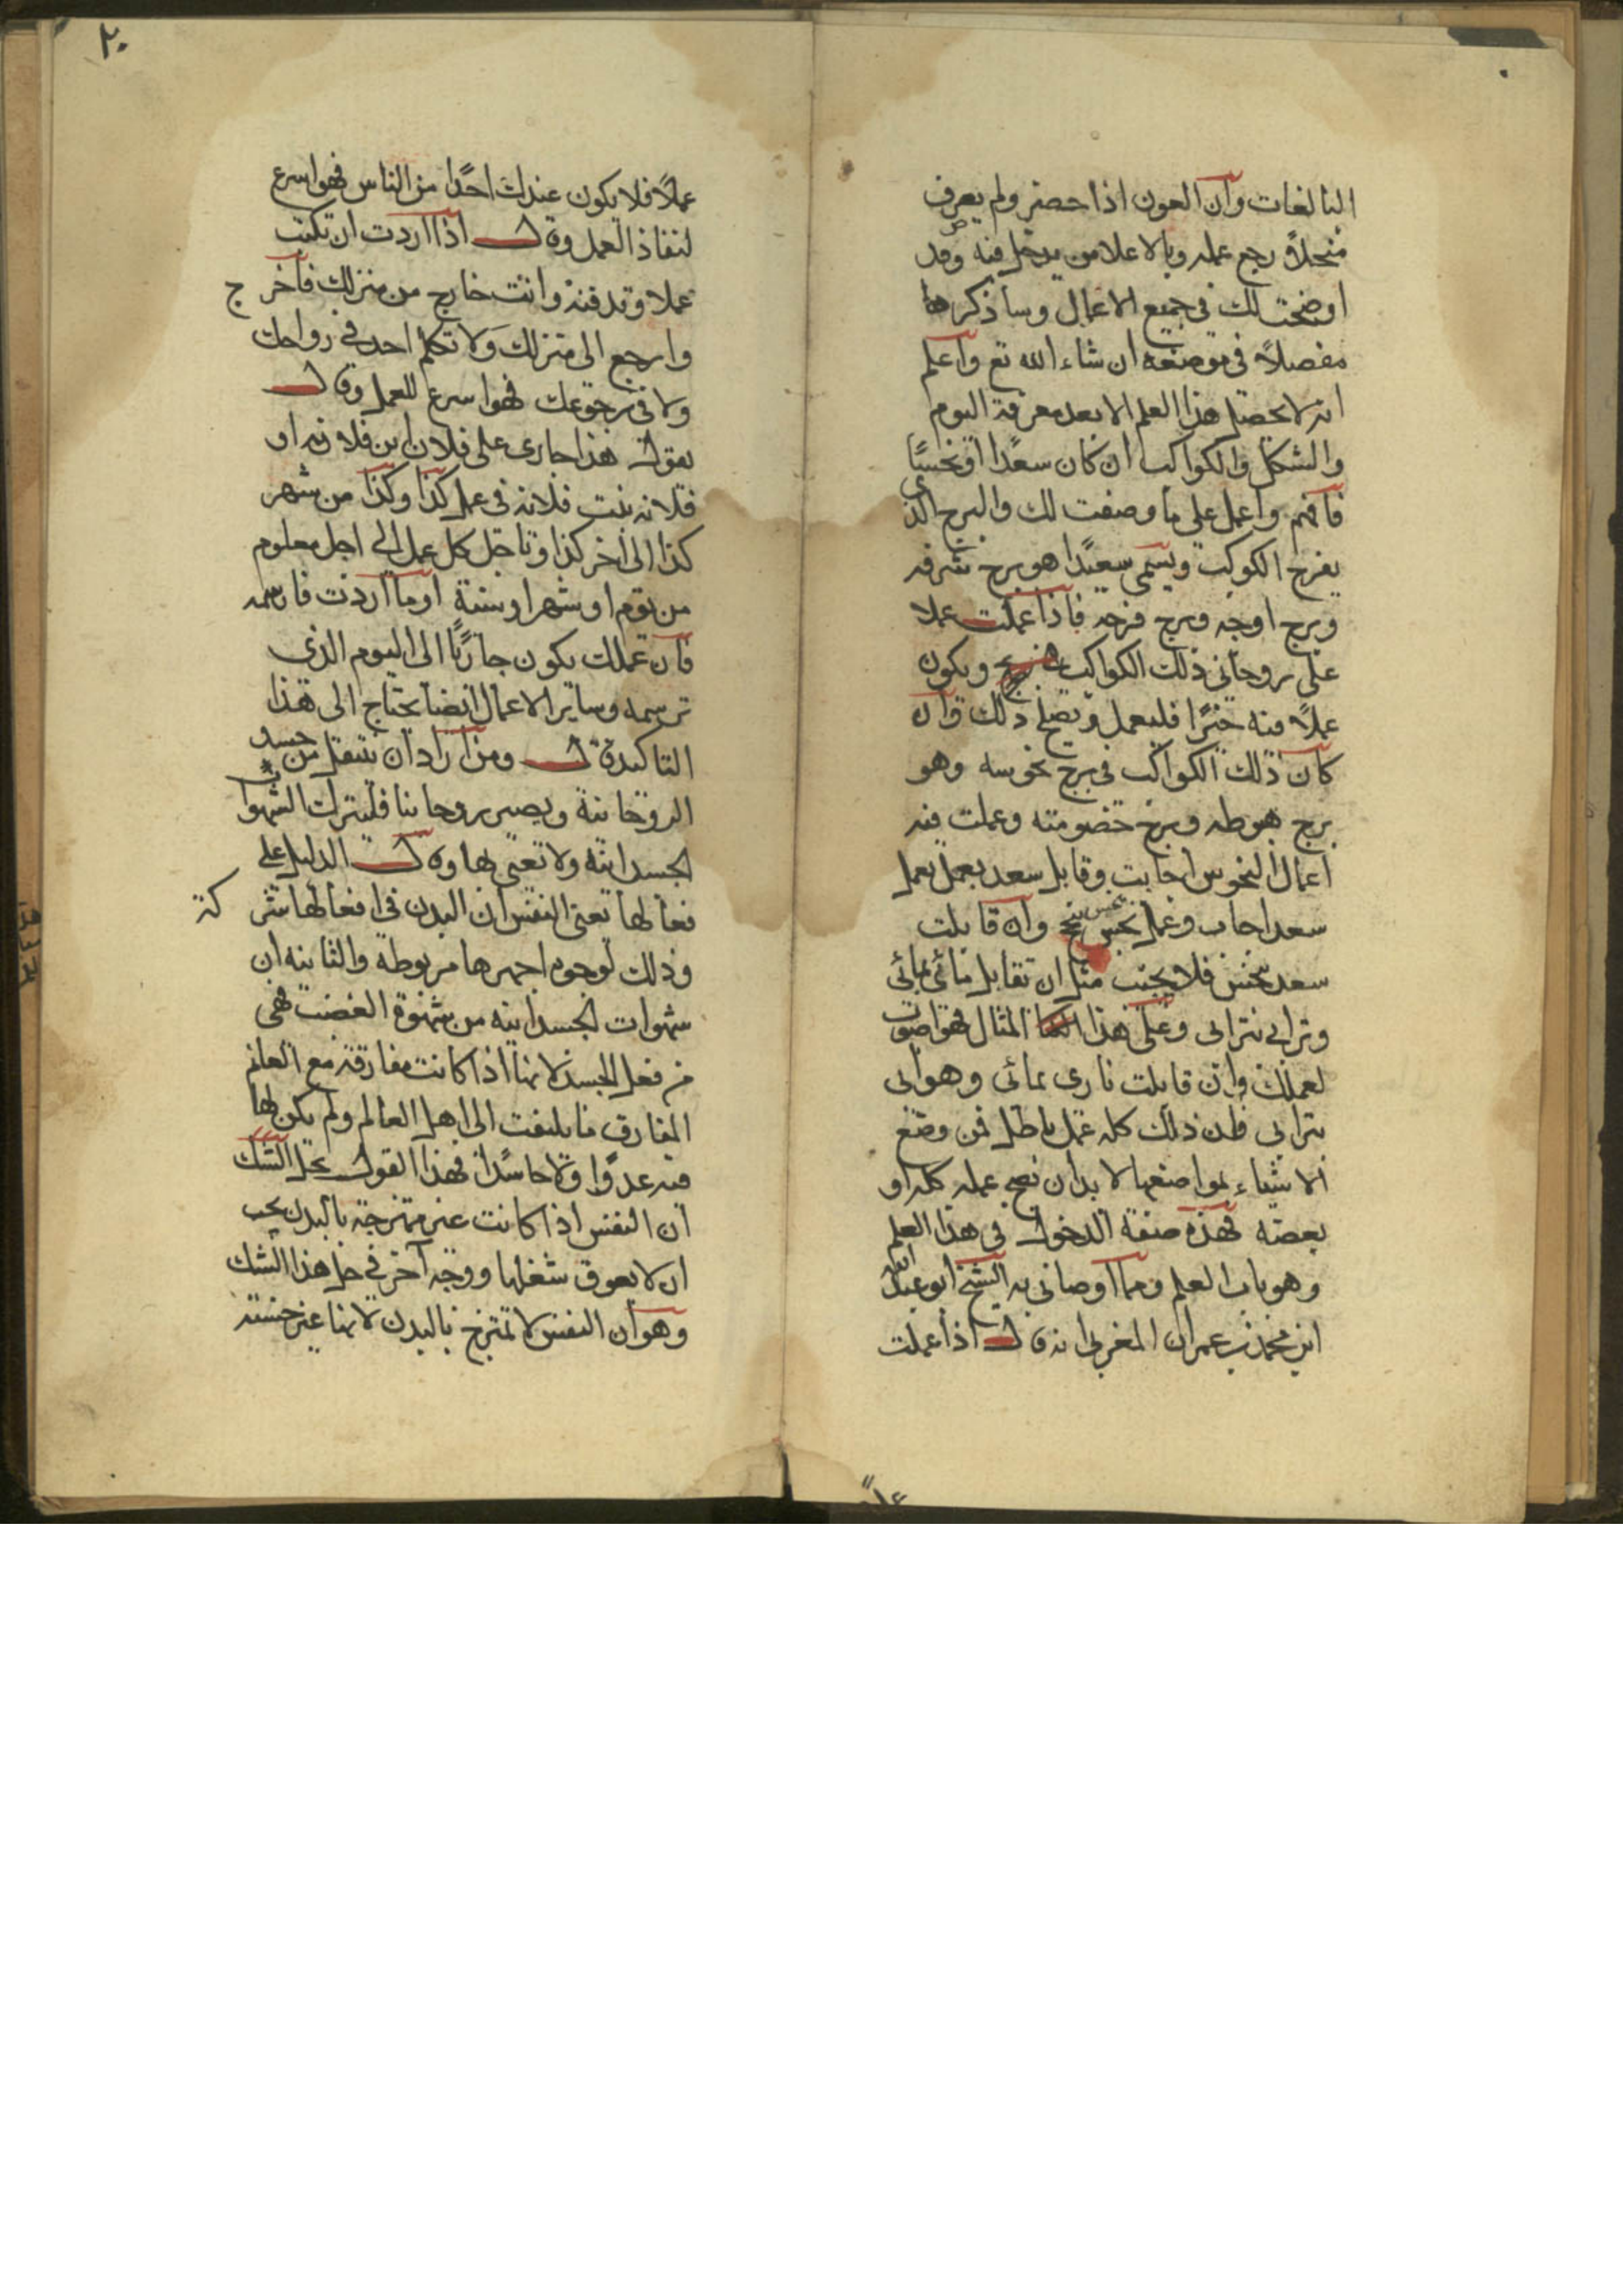 التالغات وان العون اذا حضر ولم يعرف
منحلا رجع عمله وبالا علامن يدخل فيه وقد
اوضحت لك في جميع الاعمال وساذكرها
مفصلاً في موضعه ان شاء الله تع واعلم
انه لا يحصل هذا العلم الا بعد معرفة اليوم
والشكل والكواكب ان كان سعدًا او نحسًا
فافهم واعمل على ما وصفت لك والبرج الذى
يفرح الكوكب ويسمى سعيدًا هو برج شرفه
وبرج اوجه وبرج فرحه فاذا عملت عملا
على روحانى ذلك الكواكب ويكون
عملاً فيه خيرًا فليعمل ويصلح ذلك وان
كان ذلك الكواكب في برج نحوسه وهو
برج هبوطه وبرج خصومته وعملت فيه
اعمال النحوس اجابت وقابل سعد بعمل بعمل
سعد اجاب وعمل نحس بنحس نجح وان قابلت
سعد بنحس فلا يجتنب مثل ان تقابل مائى بمائى
وترابى بترابى وعلى هذا المثال فهو اصوب
لعملك وان قابلت نارى بمائى وهوائى
بترابى فان ذلك كله عمل باطل فمن وضع
الاشياء لمواضعها لا بد ان نجح عمله كله او
بعضه فهذه صفة الدخول في هذا العلم
وهو باب العلم ومما اوصانى به الشيخ ابو عبد الله
ابن محمد بن عمران المغربى انه قال اذا عملت
عملاً
٢٠
عملاً فلا يكون عندك احدًا من الناس فهو اسرع
لنفاذ العمل وقال اذا اردت ان تكتب
عملا وتدفنه وانت خارج من منزلك فاخرج
وارجع الى منزلك ولا تكلم احد في رواحك
ولا فى رجوعك فهو اسرع للعمل وقال
يقول هذا جارى على فلان ابن فلانه او
فلانه بنت فلانه في عمل كذا وكذا من شهر
كذا الى اخر كذا وتاجل كل عمل الى اجل معلوم
من يوم او شهر او سنة او ما اردت فارسمه
فان عملك يكون جاريًا الى اليوم الذى
ترسمه وساير الاعمال ايضا يحتاج الى هذا
التاكيد قال ومن اراد ان ينتقل من جسد
الروحانية ويصير روحانيا فليترك الشهوات
الجسدانيه ولا تعبى بها وقال الدليل على
فعالها تعنى النفس ان البدن في افعالها شركة
وذلك لوجوه اجهرها مربوطة والثانيه ان
شهوات الجسدانيه من شهوة الغضب فهى
من فعل الجسد لانها اذا كانت مفارقة مع العالم
المفارق ما يلتفت الى اهل العالم ولم يكن لها
فيه عدوًا ولا حاسدًا فهذا القول يحل الشك
ان النفس اذا كانت غير ممتزجة بالبدن يجب
ان لا يعوق شغلها ووجه آخر في حل هذا الشك
وهو ان النفس لا تمتزج بالبدن لانها غير جنسه